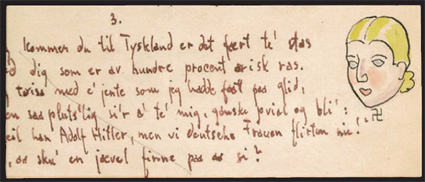 3.
kommer du til Tyskland er det fært te' stas
dig som er av hundre procent arisk ras.
e' jente som jeg hadde fått paa glid,
saa pluts'lig si'r a' te' mig, ganske jovial og bli':
heil han Adolf Hitler, men vi deutsche Frauen flirten nie!"
aa sku' en jævel finne paa aa si?